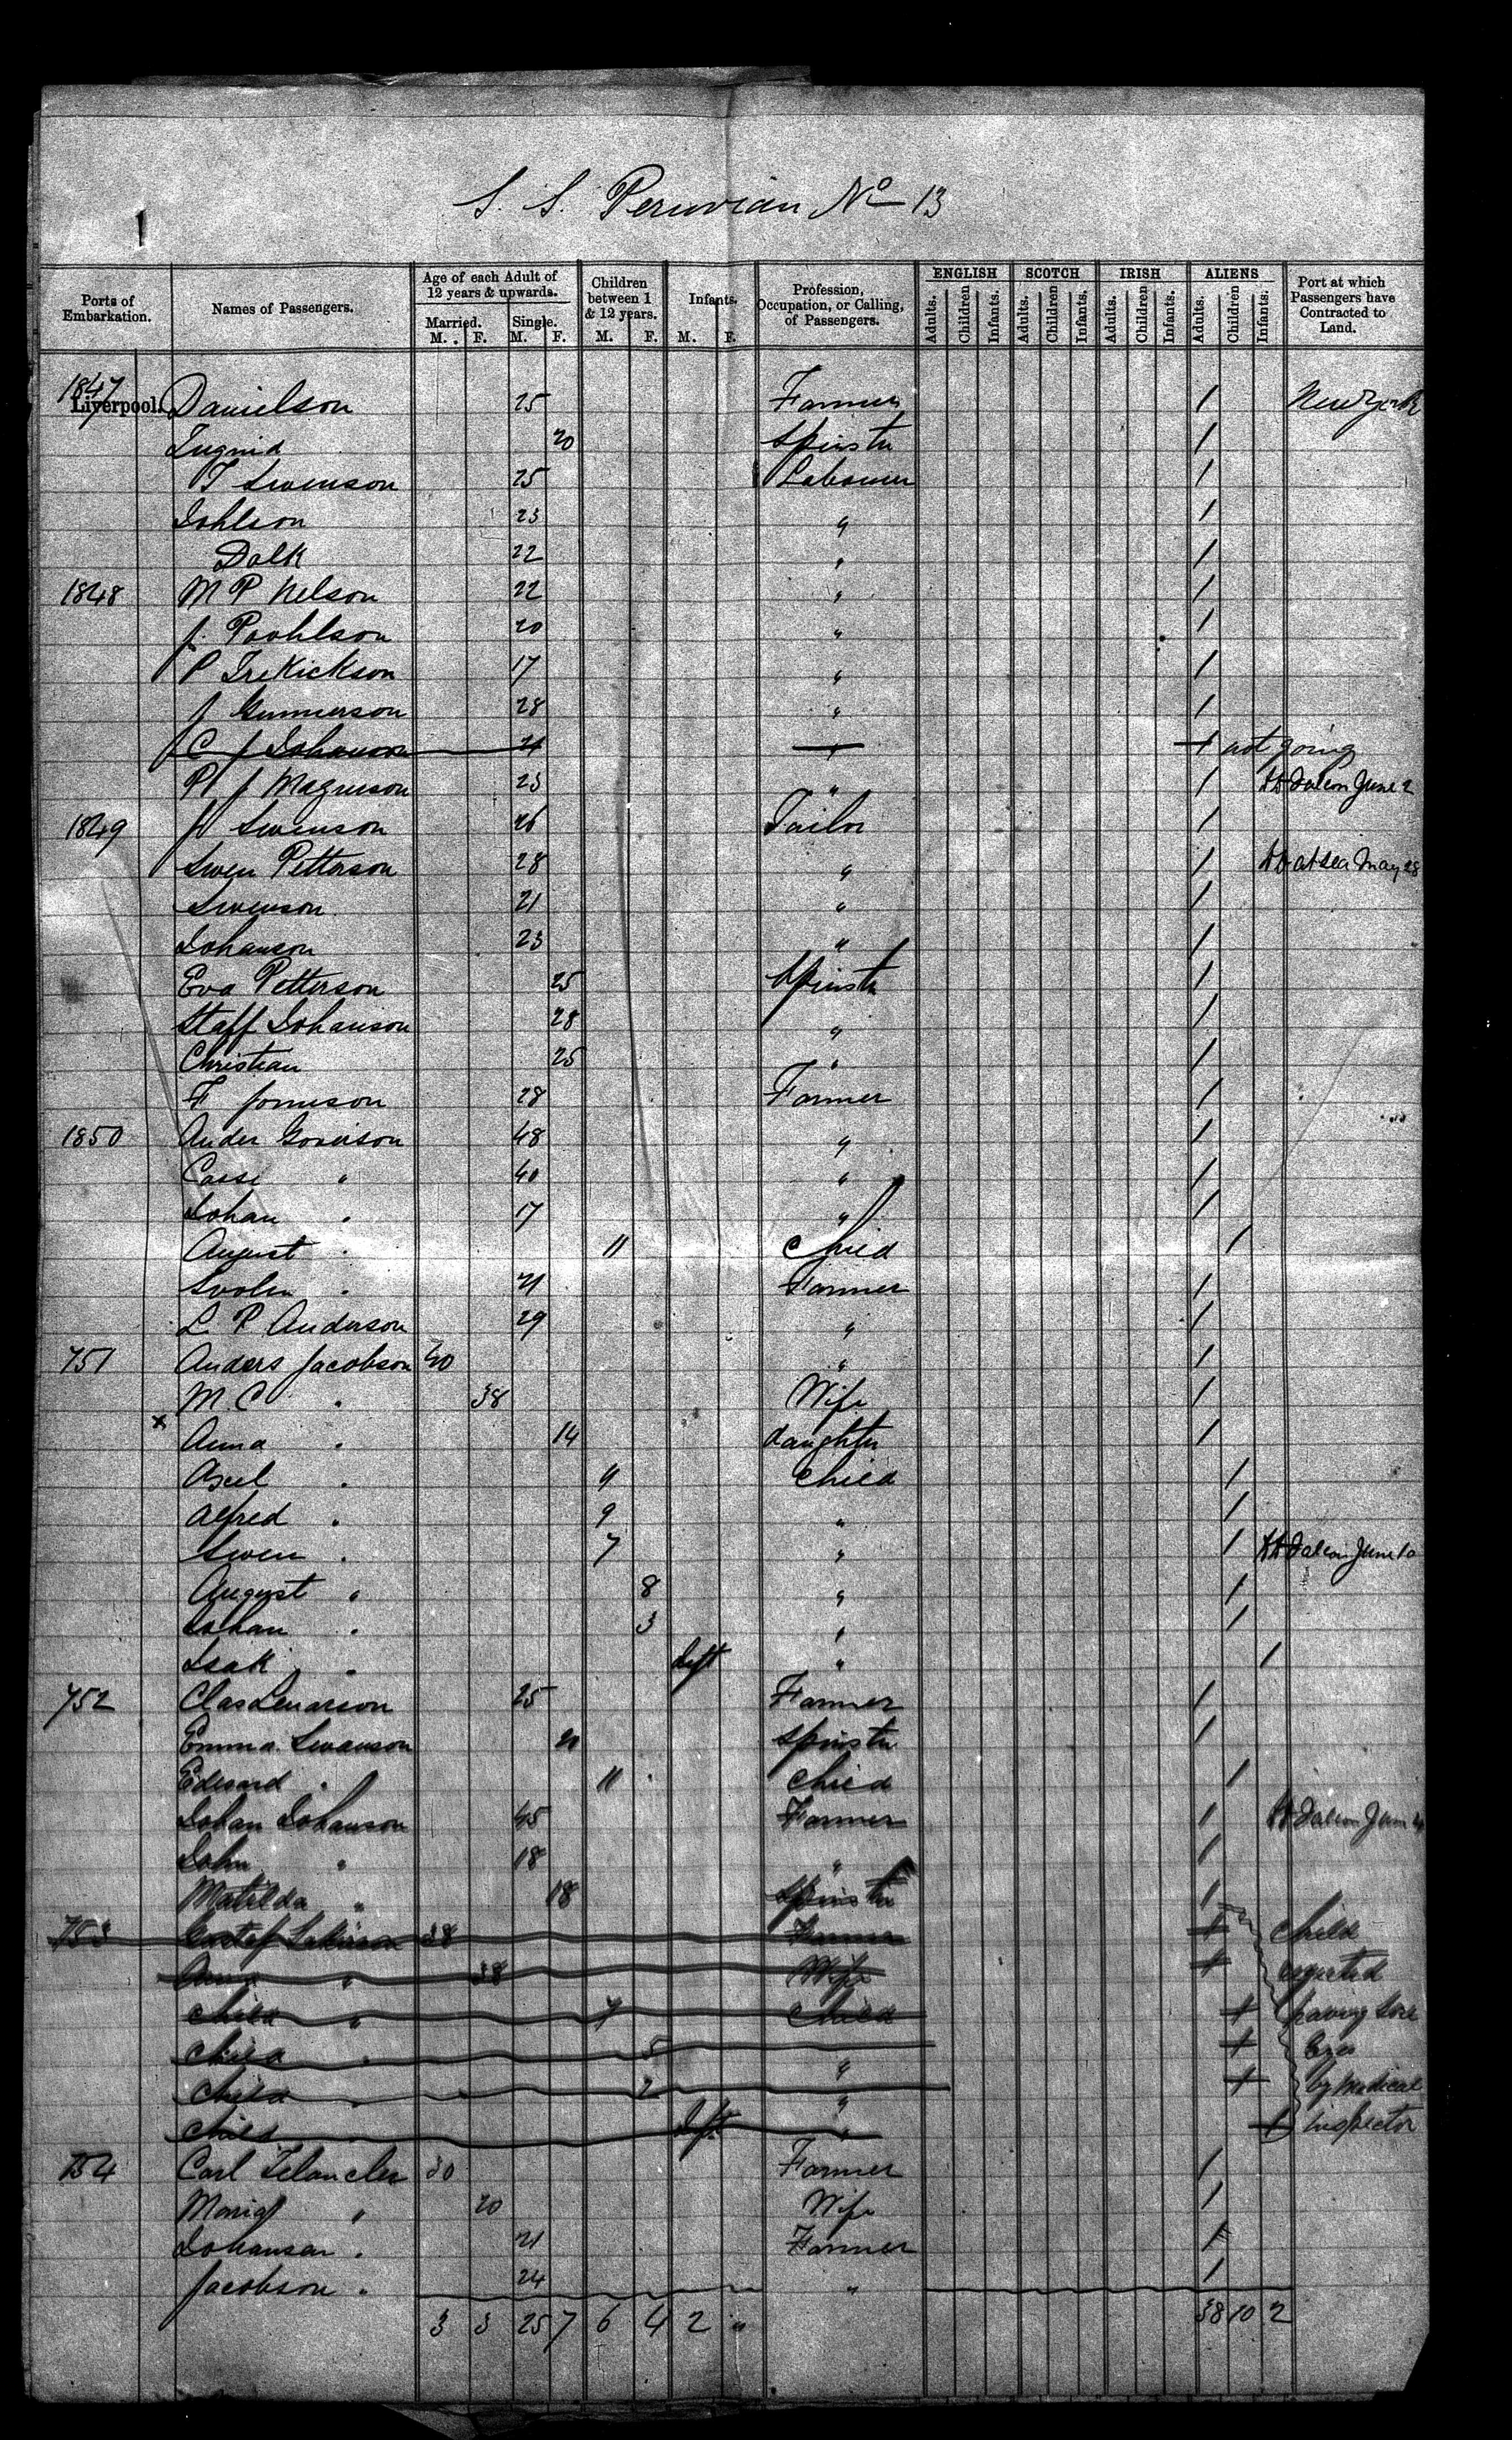 S. S. Peruvian No 13
1
Ports of Embarkation. Names of Passengers. Age of each Adult of 12 years & upwards. Married. M. F. Single. M. F. Children between 1 & 12 years. M. F. Infants. M. F. Profession, Occupation, or Calling, of Passengers. ENGLISH Adults. Children Infants. SCOTCH Adults. Children Infants. IRISH Adults. Children Infants. ALIENS Adults. Children Infants. Port at which Passengers have Contracted to Land.
1847 Liverpool. Danielson 25 Farmer 1 New York
Ingrid 20 Spinstr 1
T Swenson 25 Labourer 1
Johlson 23 " 1
Dalk 22 " 1
1848 M P Nelson 22 " 1
J. Poohlson 20 " 1
P Frekickson 17 " 1
J Gunnerson 28 " 1
C J Johanson 21 " 1 not going
P J Magnuson 23 " 1 June 2
1849 Jo Swenson 26 Tailor 1
Swen Petterson 28 " 1 at sea May 28
Swenson 21 " 1
Johanson 23 " 1
Eva Petterson 25 Spinstr 1
Staff Johanson 28 " 1
Christian 25 " 1
F Jonneson 28 Farmer 1
1850 Ander 48 " 1
Casse " 40 " 1
Johan " 17 " 1
August " 11 Child 1
" 21 Farmer 1
L P Anderson 29 " 1
751 Anders Jacobson 40 " 1
M. C " 38 Wife 1
x Anna " 14 daughtr 1
Axel " 11 Child 1
Alfred " 9 " 1
Swen " 7 " 1 June 10
August " 8 " 1
Johan " 3 " 1
Isak " Inft " 1
752 Clas Lenarson 25 Farmer 1
Emma Swanson 20 Spinstr 1
Edward " 11 Child 1
Johan Johanson 45 Farmer 1
John " 18 " 1
Matilda " 18 Spinstr 1
753 Gustaf 38 Farmer 1 Child
Anna " 38 Wife 1 rejected
Child " 7 Child 1 having Sore
Child " 5 " 1 Eyes
Child " 2 " 1 by Medical
Child " Inft " 1 inspector
754 Carl 30 Farmer 1
Maria " 20 Wife 1
Johansan " 21 Farmer 1
Jacobson " 24 " 1
3 3 25 7 6 4 2 " 38 10 2